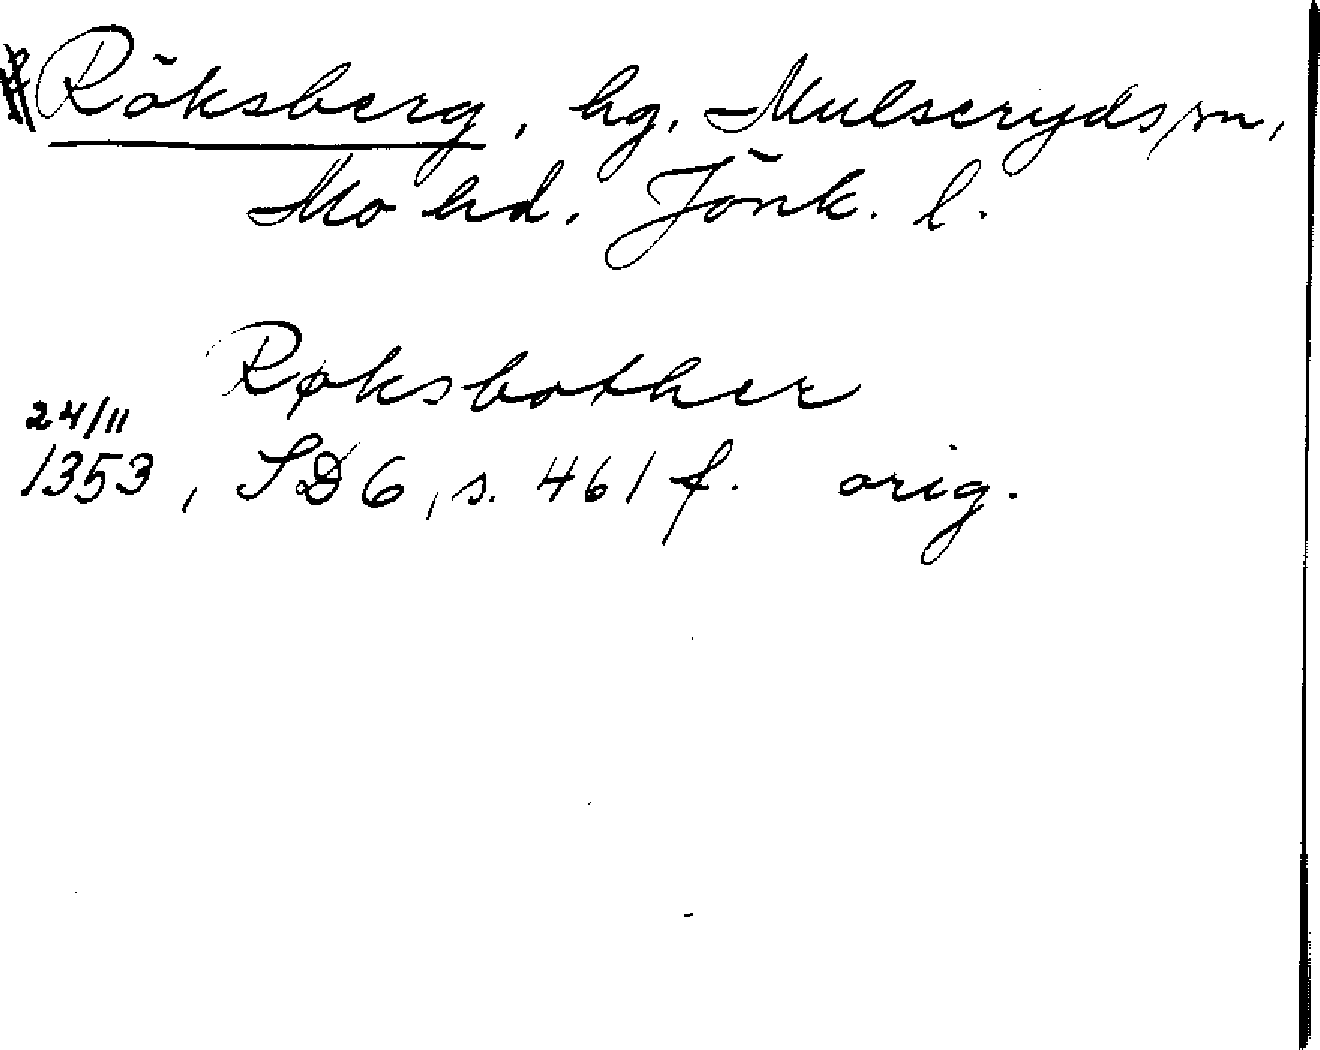 Röksberg, hg. Mulseryds sn,
Mo hd. Jönk. l.
Røksbother
24/11
1353, SD 6, s. 461 f. orig.